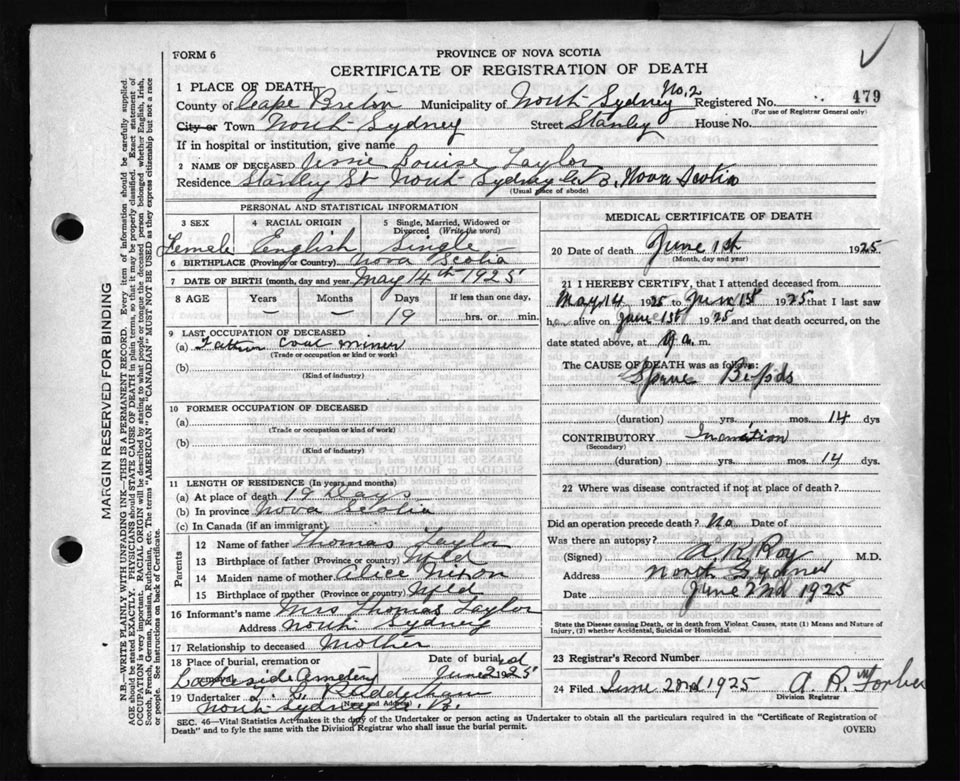 FORM 6
PROVINCE OF NOVA SCOTIA
CERTIFICATE OF REGISTRATION OF DEATH
1 PLACE OF DEATH
County of Cape Breton Municipality of North Sydney No. 2 Registered No. 479
(For use of Registrar General only)
City or Town North Sydney Street Stanley House No.
If in hospital or institution, give name
2 NAME OF DECEASED Jessie Louise Taylor
Residence Stanley St North Sydney C. B. Nova Scotia
(Usual place of abode)
PERSONAL AND STATISTICAL INFORMATION
3 SEX 4 RACIAL ORIGIN 5 Single, Married, Widowed or Divorced (Write the word)
Female English Single
6 BIRTHPLACE (Province or Country) Nova Scotia
7 DATE OF BIRTH (month, day and year) May 14th 1925
8 AGE Years Months Days If less than one day,
– – 19 hrs. or min.
9 LAST OCCUPATION OF DECEASED
(a) Father Coal miner
(Trade or occupation or kind or work)
(b)
(Kind of industry)
10 FORMER OCCUPATION OF DECEASED
(a)
(Trade or occupation or kind of work)
(b)
(Kind of industry)
11 LENGTH OF RESIDENCE (In years and months)
(a) At place of death 19 Days
(b) In province Nova Scotia
(c) In Canada (if an immigrant)
Parents
12 Name of father Thomas Taylor
13 Birthplace of father (Province or country) Nfld
14 Maiden name of mother Alice Nixon
15 Birthplace of mother (Province or country) Nfld
16 Informant's name Mrs Thomas Taylor
Address North Sydney
17 Relationship to deceased Mother
18 Place of burial, cremation or Date of burial
Cemetery June 2nd 1925
19 Undertaker
(Name and Address)
North Sydney C. B.
MEDICAL CERTIFICATE OF DEATH
20 Date of death June 1st 1925
(Month, day and year)
21 I HEREBY CERTIFY, that I attended deceased from
May 14 1925 to June 1st 1925 that I last saw
her alive on June 1st 1925 and that death occurred, on the
date stated above, at a. m.
The CAUSE OF DEATH was as follows:
Spine Bifida
(duration) yrs. mos. 14 dys
CONTRIBUTORY Inanition
(Secondary)
(duration) yrs. mos. 14 dys.
22 Where was disease contracted if not at place of death?
Did an operation precede death? No Date of
Was there an autopsy?
(Signed) A K Roy M.D.
Address North Sydney
Date June 2nd 1925
State the Disease causing Death, or in death from Violent Causes, state (1) Means and Nature of
Injury, (2) whether Accidental, Suicidal or Homicidal.
23 Registrar's Record Number
24 Filed June 2nd 1925 A. R. Forbes
Division Registrar
SEC. 46—Vital Statistics Act makes it the duty of the Undertaker or person acting as Undertaker to obtain all the particulars required in the "Certificate of Registration of
Death" and to fyle the same with the Division Registrar who shall issue the burial permit.
(OVER)
MARGIN RESERVED FOR BINDING
N.B.—WRITE PLAINLY WITH UNFADING INK—THIS IS A PERMANENT RECORD. Every item of information should be carefully supplied.
AGE should be stated EXACTLY. PHYSICIANS should STATE CAUSE OF DEATH in plain terms, so that it may be properly classified. Exact statement of
OCCUPATION is very important. RACIAL ORIGIN will be described by stating to what people or tongue the deceased person belonged whether English, Irish,
Scotch, French, German, Russian, Ruthenian, etc. The terms "AMERICAN" OR "CANADIAN" MUST NOT BE USED as they express citizenship but not a race
or people. See instructions on back of Certificate.